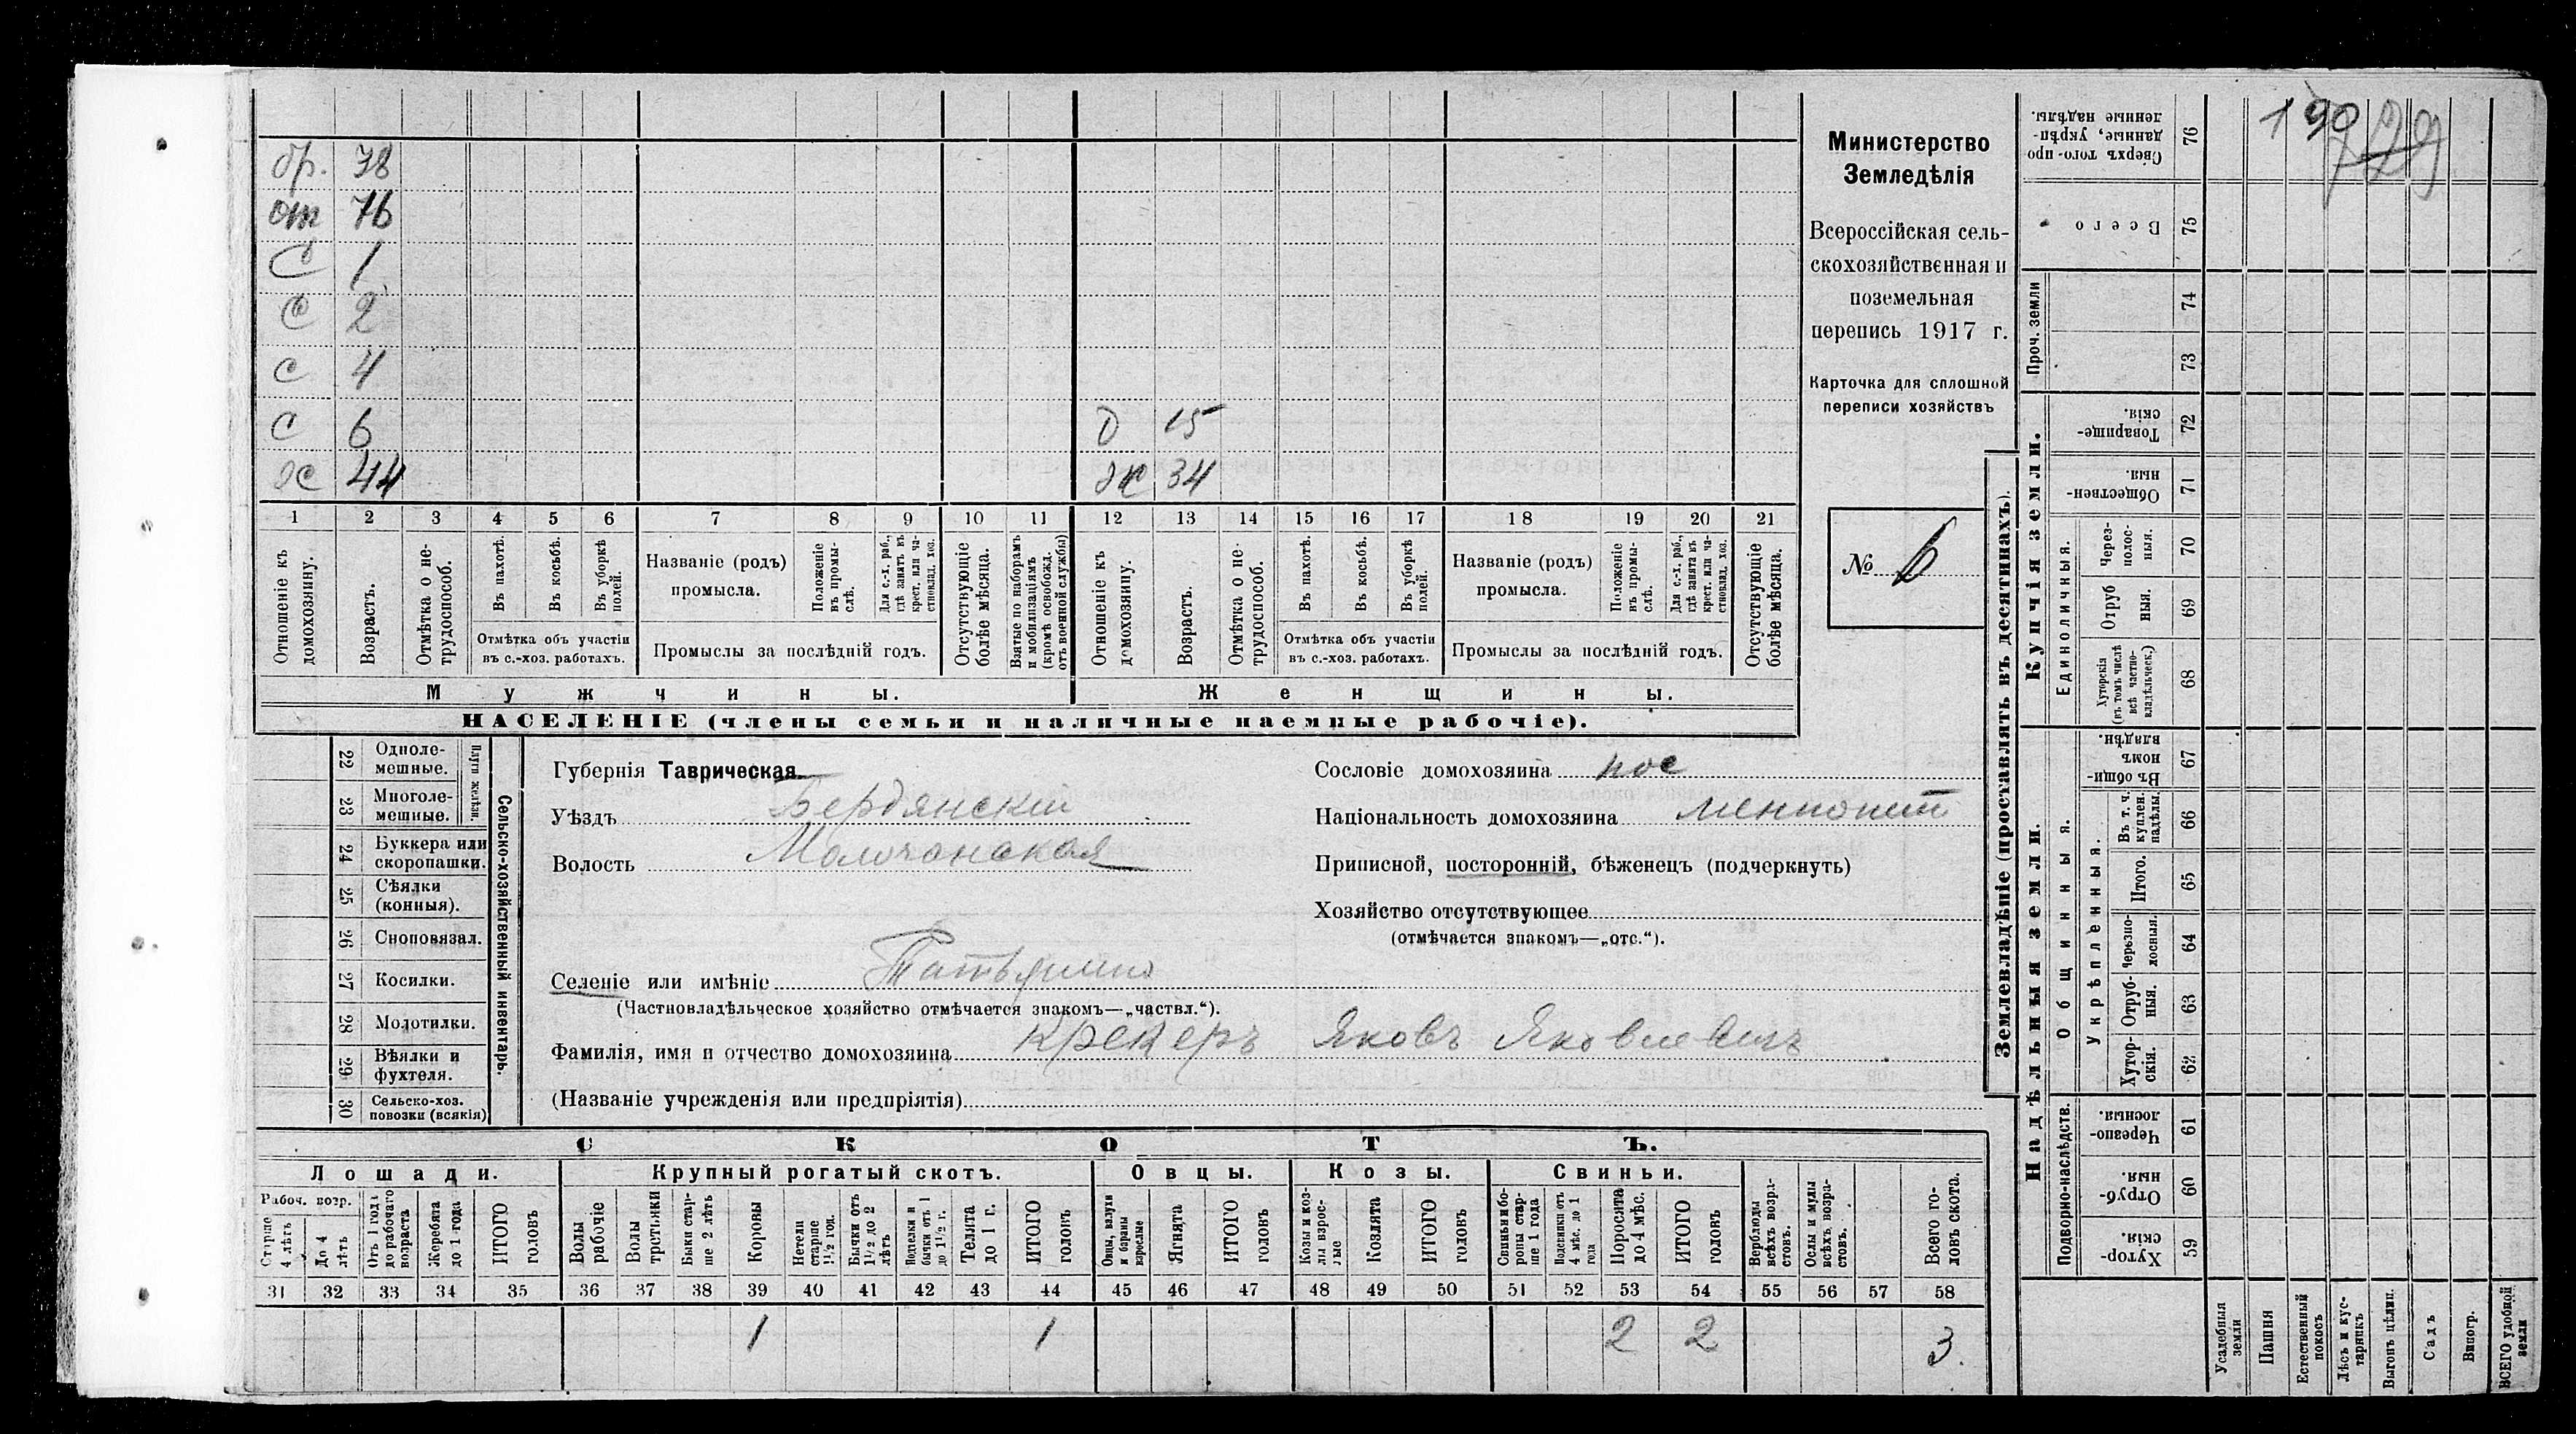 бр. 78
от 76
С 1
С 2
С 4
С 6 д 15
Ж 44 Ж 34
1 2 3 4 5 6 7 8 9 10 11 12 13 14 15 16 17 18 19 20 21
Отношеніе къ домохозяину.
Возрастъ.
Отмѣтка о не-трудоспособ.
Въ пахотѣ.
Въ косьбѣ.
Въ уборкѣ полей.
Отмѣтка объ участіи
въ с.-хоз. работахъ.
Названіе (родъ)
промысла.
Положеніе въ промы-слѣ.
Для с.-х. раб., гдѣ занятъ въ крест. или ча-стновлад. хоз.
Промыслы за послѣдній годъ.
Отсутствующіе болѣе мѣсяца.
Взятые по наборамъ и мобилизаціямъ (кромѣ освобожд. отъ военной службы)
Отношеніе къ домохозяину.
Возрастъ.
Отмѣтка о не-трудоспособ.
Въ пахотѣ.
Въ косьбѣ.
Въ уборкѣ полей.
Отмѣтка объ участіи
въ с.-хоз. работахъ.
Названіе (родъ)
промысла.
Положеніе въ промы-слѣ.
Для с.-х. раб., гдѣ занята въ крест. или ча-стновлад. хоз.
Промыслы за послѣдній годъ.
Отсутствующіе болѣе мѣсяца.
Мужчины. Женщины.
НАСЕЛЕНІЕ (члены семьи и наличные наемные рабочіе).
Министерство
Земледѣлія
Всероссійская сель-
скохозяйственная и
поземельная
перепись 1917 г.
Карточка для сплошной
переписи хозяйствъ
№ 6
22 Одноле-мешные.
23 Многоле-мешные.
Плуги желѣзн.
24 Буккера или скоропашки.
25 Сѣялки (конныя).
26 Сноповязал.
27 Косилки.
28 Молотилки.
29 Вѣялки и фухтеля.
30 Сельско-хоз. повозки (всякія)
Сельско-хозяйственный инвентарь.
Губернія Таврическая
Уѣздъ Бердянскій
Волость Молочанская
Сословіе домохозяина пос
Національность домохозяина меннонит
Приписной, посторонній, бѣженецъ (подчеркнуть)
Хозяйство отсутствующее
(отмѣчается знакомъ—„отс.“).
Селеніе или имѣніе
(Частновладѣльческое хозяйство отмѣчается знакомъ—„частвл.“).
Фамилія, имя и отчество домохозяина Крекеръ Яковъ Яковлевичъ
(Названіе учрежденія или предпріятія)
СКОТЪ.
Лошади. Крупный рогатый скотъ. Овцы. Козы. Свиньи.
Рабоч. возр.
Старше 4 лѣтъ
До 4 лѣтъ
Отъ 1 года до рабочаго возраста
Жеребята до 1 года
ИТОГО головъ
Волы рабочіе
Волы третьяки
Быки стар-ше 2 лѣтъ
Коровы
Нетели старше 1 1/2 год.
Бычки отъ 1 1/2 до 2 лѣтъ
Подтелки и бычки отъ 1 до 1 1/2 г.
Телята до 1 г.
ИТОГО головъ
Овцы, валухи и бараны взрослые
Ягнята
ИТОГО головъ
Козы и коз-лы взрос-лые
Козлята
ИТОГО головъ
Свиньи и бо-ровы стар-ше 1 года
Подсвинки отъ 4 мѣс. до 1 года
Поросята до 4 мѣс.
ИТОГО головъ
Верблюды всѣхъ возра-стовъ.
Ослы и мулы всѣхъ возра-стовъ.
Всего го-ловъ скота.
31 32 33 34 35 36 37 38 39 40 41 42 43 44 45 46 47 48 49 50 51 52 53 54 55 56 57 58
1 1 2 2 3
Землевладѣніе (проставлять въ десятинахъ).
Купчія земли.
Надѣльныя земли.
Сверхъ того-про данные, укрѣп-ленные надѣлы. 76
Всего 75
Проч. земли 74 73
Товарище-скія. 72
Обществен-ныя. 71
Единоличныя.
Через-полос-ныя. 70
Отруб ныя. 69
Хуторскія (въ томъ числѣ всѣ частно-владѣльческ.) 68
Общинныя.
Въ общи-номъ владѣн. 67
Укрѣпленныя.
Въ т. ч. куплен. надѣлы. 66
Итого. 65
Черезпо-лосныя. 64
Отруб-ныя. 63
Хутор-скія. 62
Подворно-наслѣдств.
Черезпо-лосныя. 61
Отруб-ныя 60
Хутор-скія. 59
Усадебныя земли
Пашня
Естественный покосъ
Лѣсъ и кус-тарникъ
Выгонъ цѣлин.
Садъ
Виногр.
ВСЕГО удобной земли